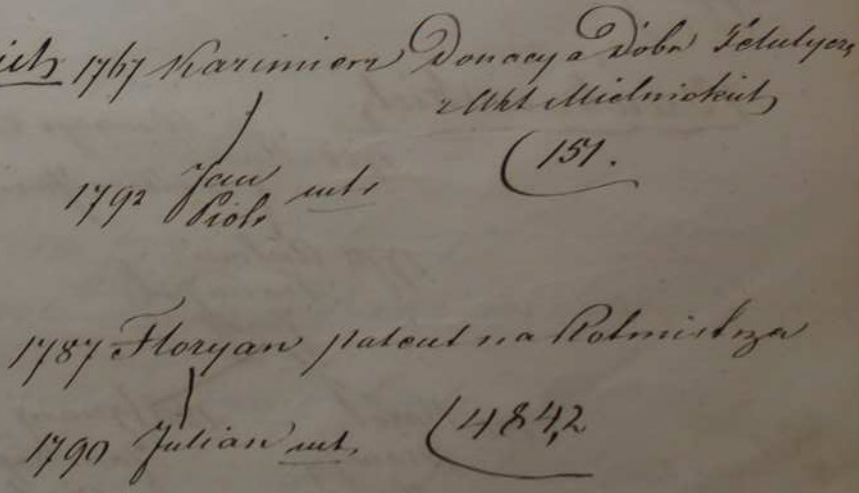 1767 Kazimierz Donacya Dóbr
z Akt Mielnickich
1792 Jan
Piotr
(151.
1787 Floryan patent na Rotmistrza
1790 Julian (4842